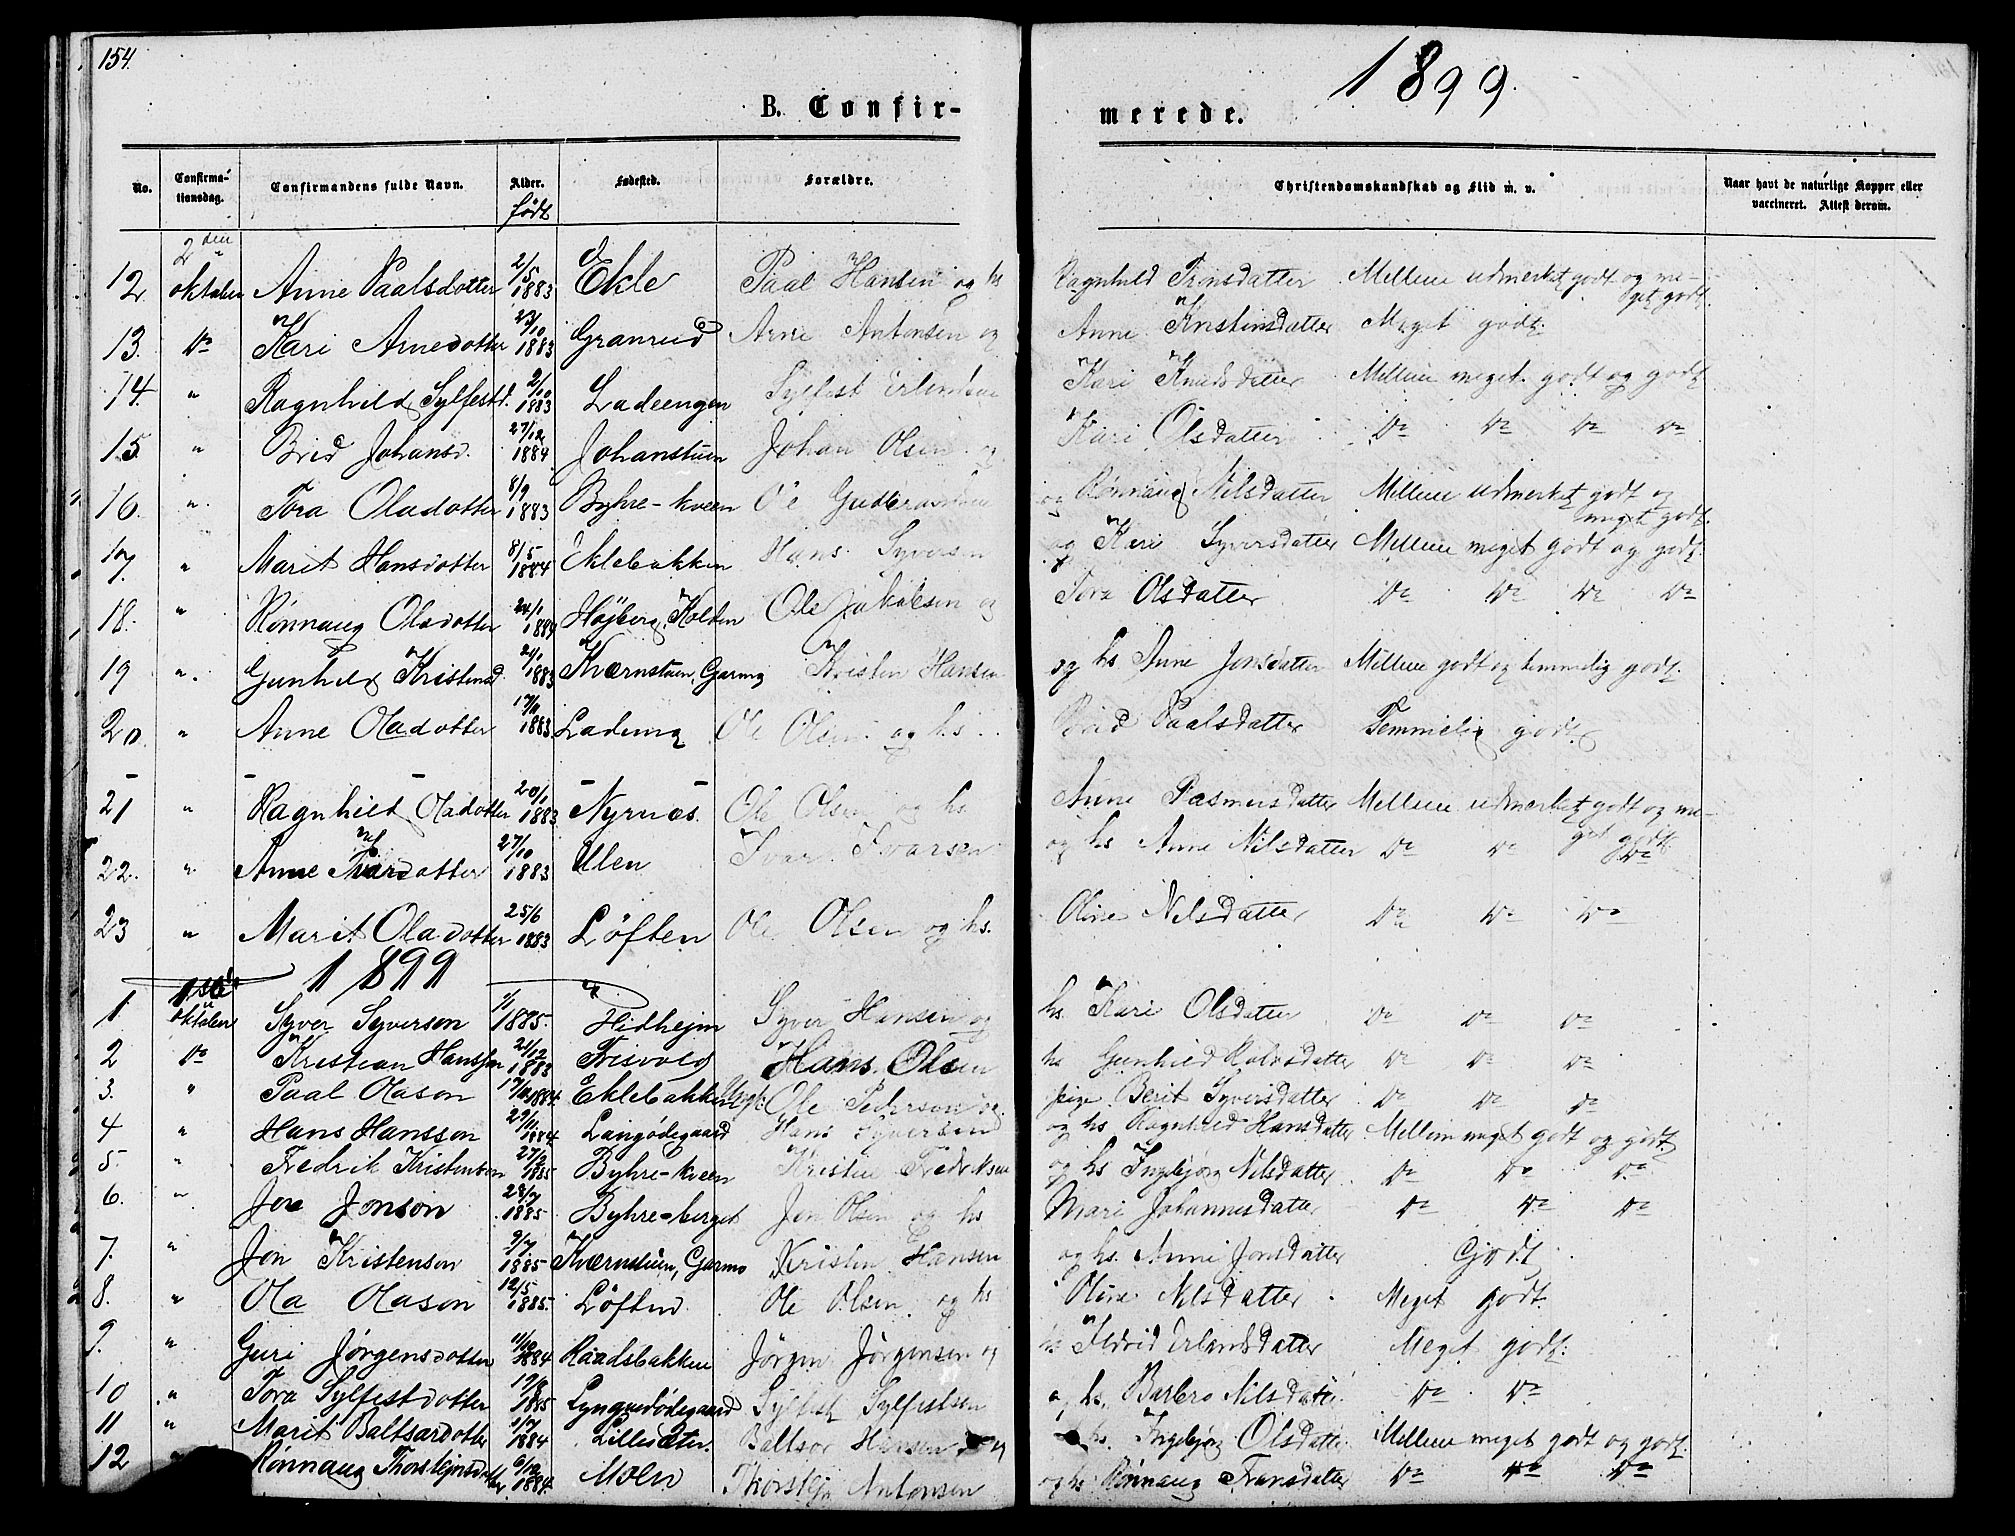 154.
1899.
B. Confir-
merede.
No. Confirma-tionsdag. Confirmandens fulde Navn. Alder. født Fødested. Forældre. Christendomskundskab og Flid m. v. Naar havt de naturlige Kopper eller vaccineret. Attest derom.
2den
12. oktober Anne Paalsdotter 2/5 1883 Ekle Paal Hansen og hs Ragnhild Tronsdatter Mellem udmerket godt og me-
get godt.
13. Do Kari Arnedotter 1883 Granrud Arne Antonsen og Anne Kristensdatter Meget godt.
14. " Ragnhild Sylfestd. 2/10 1883 Ladeengen Sylfest Erlendsen Kari Knudsdatter Mellem meget godt og godt
15 " Brid Johansd. 27/12 1884 Johanstuen Johan Olsen og Kari Olsdatter Do Do Do Do
16 " Tora Oladotter 8/9 1883 Byhre-kveen Ole Gudbrandsen og Rønnaug Nilsdatter Mellem udmerket godt og
meget godt.
17. " Marit Hansdotter 8/5 1884 Eklebakken Hans Syversen og Kari Syversdatter Mellem meget godt og godt.
18. " Rønnaug Oladotter 24/1 1884 Højberg, Kolden Ole Jakobsen og Tora Olsdatter Do Do Do Do
19 " Gunhild Kristensd. 1883 Kværnstuen, Garmo Kristen Hansen og hs Anne Jonsdatter Mellem godt og temmelig godt.
20. " Anne Oladotter 1883 Ladema Ole Olsen og hs. Brid Paalsdatter Temmelig godt.
21 " Ragnhild Oladotter 20/1 1883 Nyrnæs. Ole Olsen og hs. Anne Rasmusdatter Mellem udmerket godt og me-
get godt.
22. " Anne Ivarsdotter 27/10 1883 Ulen Ivar Ivarsen og hs Anne Nilsdatter Do Do Do
23 " Marit Oladotter 25/6 1883 Løften Ole Olsen og hs. Oline Nilsdatter Do Do Do
1899
1 1ste oktober Syver Syverson 1/1 1885. Hidhejm Syver Hansen og hs. Kari Olsdatter Do Do Do
2 Do Kristian Hansson 21/12 1883 Frisvold Hans Olsen hs Gunhild Rolvsdatter Do Do Do
3. " Paal Olason 1884 Eklebakken Ungk. Ole Pederson og pige Berit Syversdatter Do Do Do
4 " Hans Hansson 29/11 1884 Langødegaard Hans Syversen og hs Ragnhild Hansdatter Mellem meget godt og godt.
5. " Fredrik Kristenson 1885 Byhre-kveen Kristen Fredriksen og hs Ingebjørg Nilsdatter Do Do Do
6. " Jon Jonson 28/7 1885 Byhre-berget Jon Olsen og hs Mari Johannesdatter Do Do Do
7. " Jon Kristenson 9/7 1885 Kværnstuen, Garmo Kristen Hansen og hs. Anne Jonsdatter Godt.
8. " Ola Olason 12/5 1885. Løften. Ole Olsen og hs Oline Nilsdatter Meget godt.
9. " Guri Jørgensdotter 11/10 1884 Raadsbakken Jørgen Jørgensen og hs Ildrid Erlandsdatter Meget godt.
10 " Tora Sylfestdotter 1885 Lyngvedødegaard Sylfest Sylfestsen og hs. Barbro Nilsdatter Do Do
11 " Marit Baltsardotter 1/7 1884 Lillesæter. Baltsar Hansen og hs. Ingebjørg Olsdatter Mellem meget godt og godt.
12 Rønnaug Thorstejnsdotter 6/12 1884 Moen Thorstejn Antonsen og hs Rønnaug Fransdatter Do Do Do